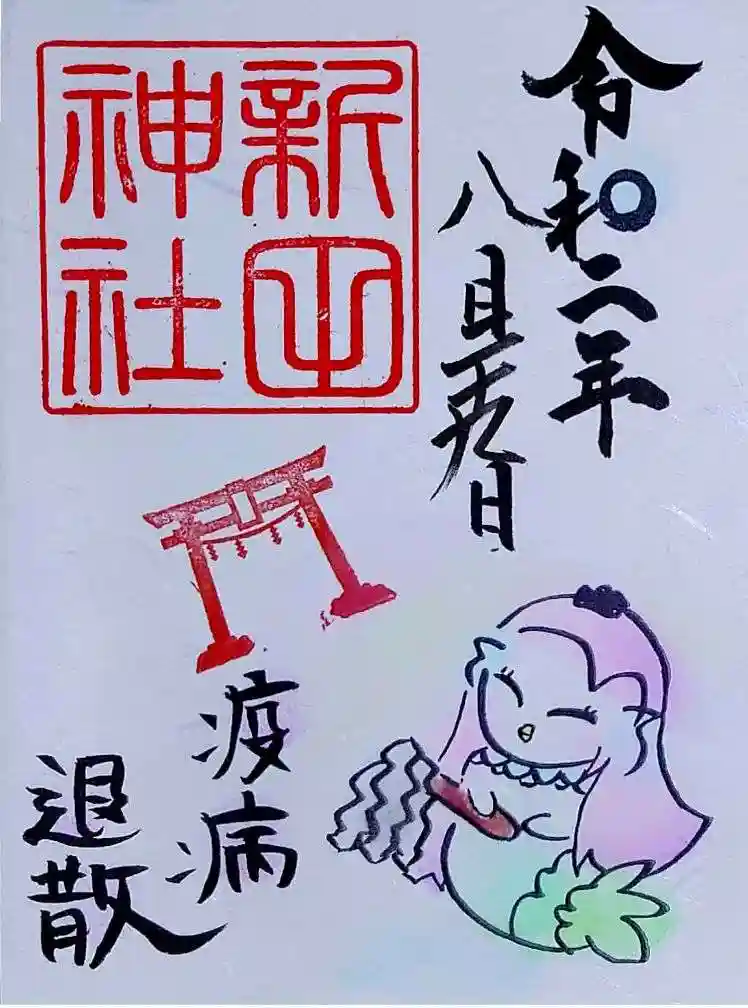 令和二年
八月二十九日
新田
神社
疫病
退散